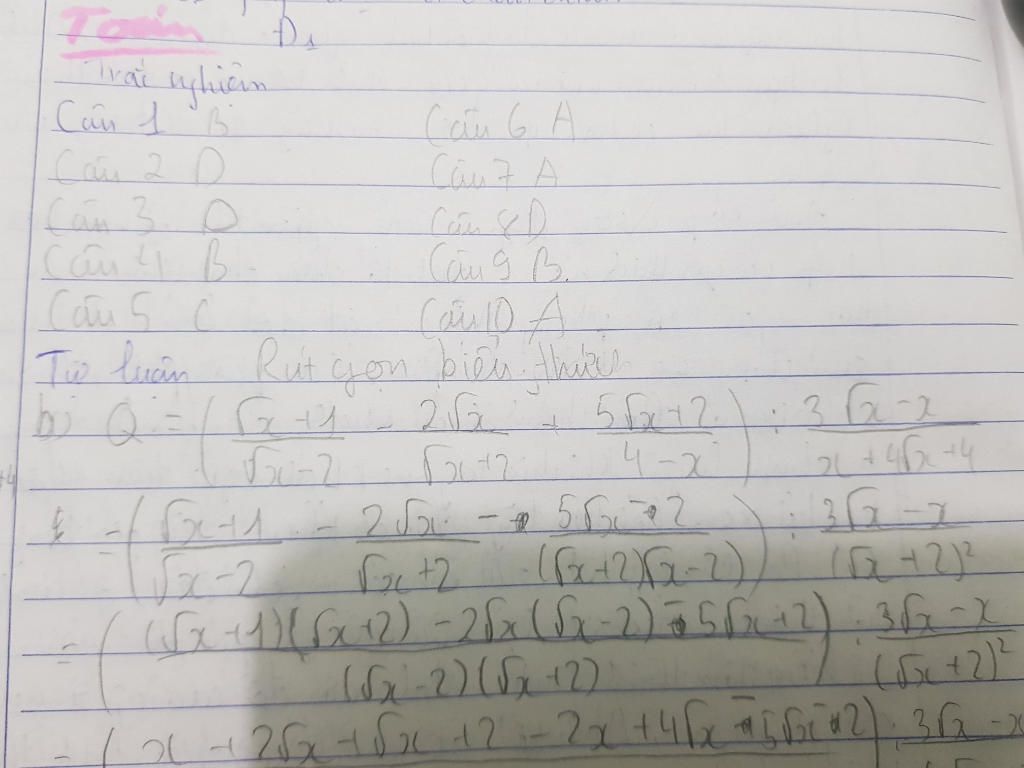 Toán Đ1
Trắc nghiệm
Câu 1 B Câu 6 A
Câu 2 D Câu 7 A
Câu 3 D Câu 8 D
Câu 4 B Câu 9 B.
Câu 5 C Câu 10 A
Tự luận Rút gọn biểu thức
b) Q = ( (√x+1)/(√x-2) - (2√x)/(√x+2) + (5√x+2)/(4-x) ) : (3√x-x)/(x+4√x+4)
= ( (√x+1)/(√x-2) - (2√x)/(√x+2) - (5√x-2)/((√x+2)(√x-2)) ) : (3√x-x)/(√x+2)²
= ( ((√x+1)(√x+2) - 2√x(√x-2) - 5√x+2)/((√x-2)(√x+2)) ) : (3√x-x)/(√x+2)²
= ( x + 2√x + √x + 2 - 2x + 4√x - 5√x - 2 ) : 3√x - x